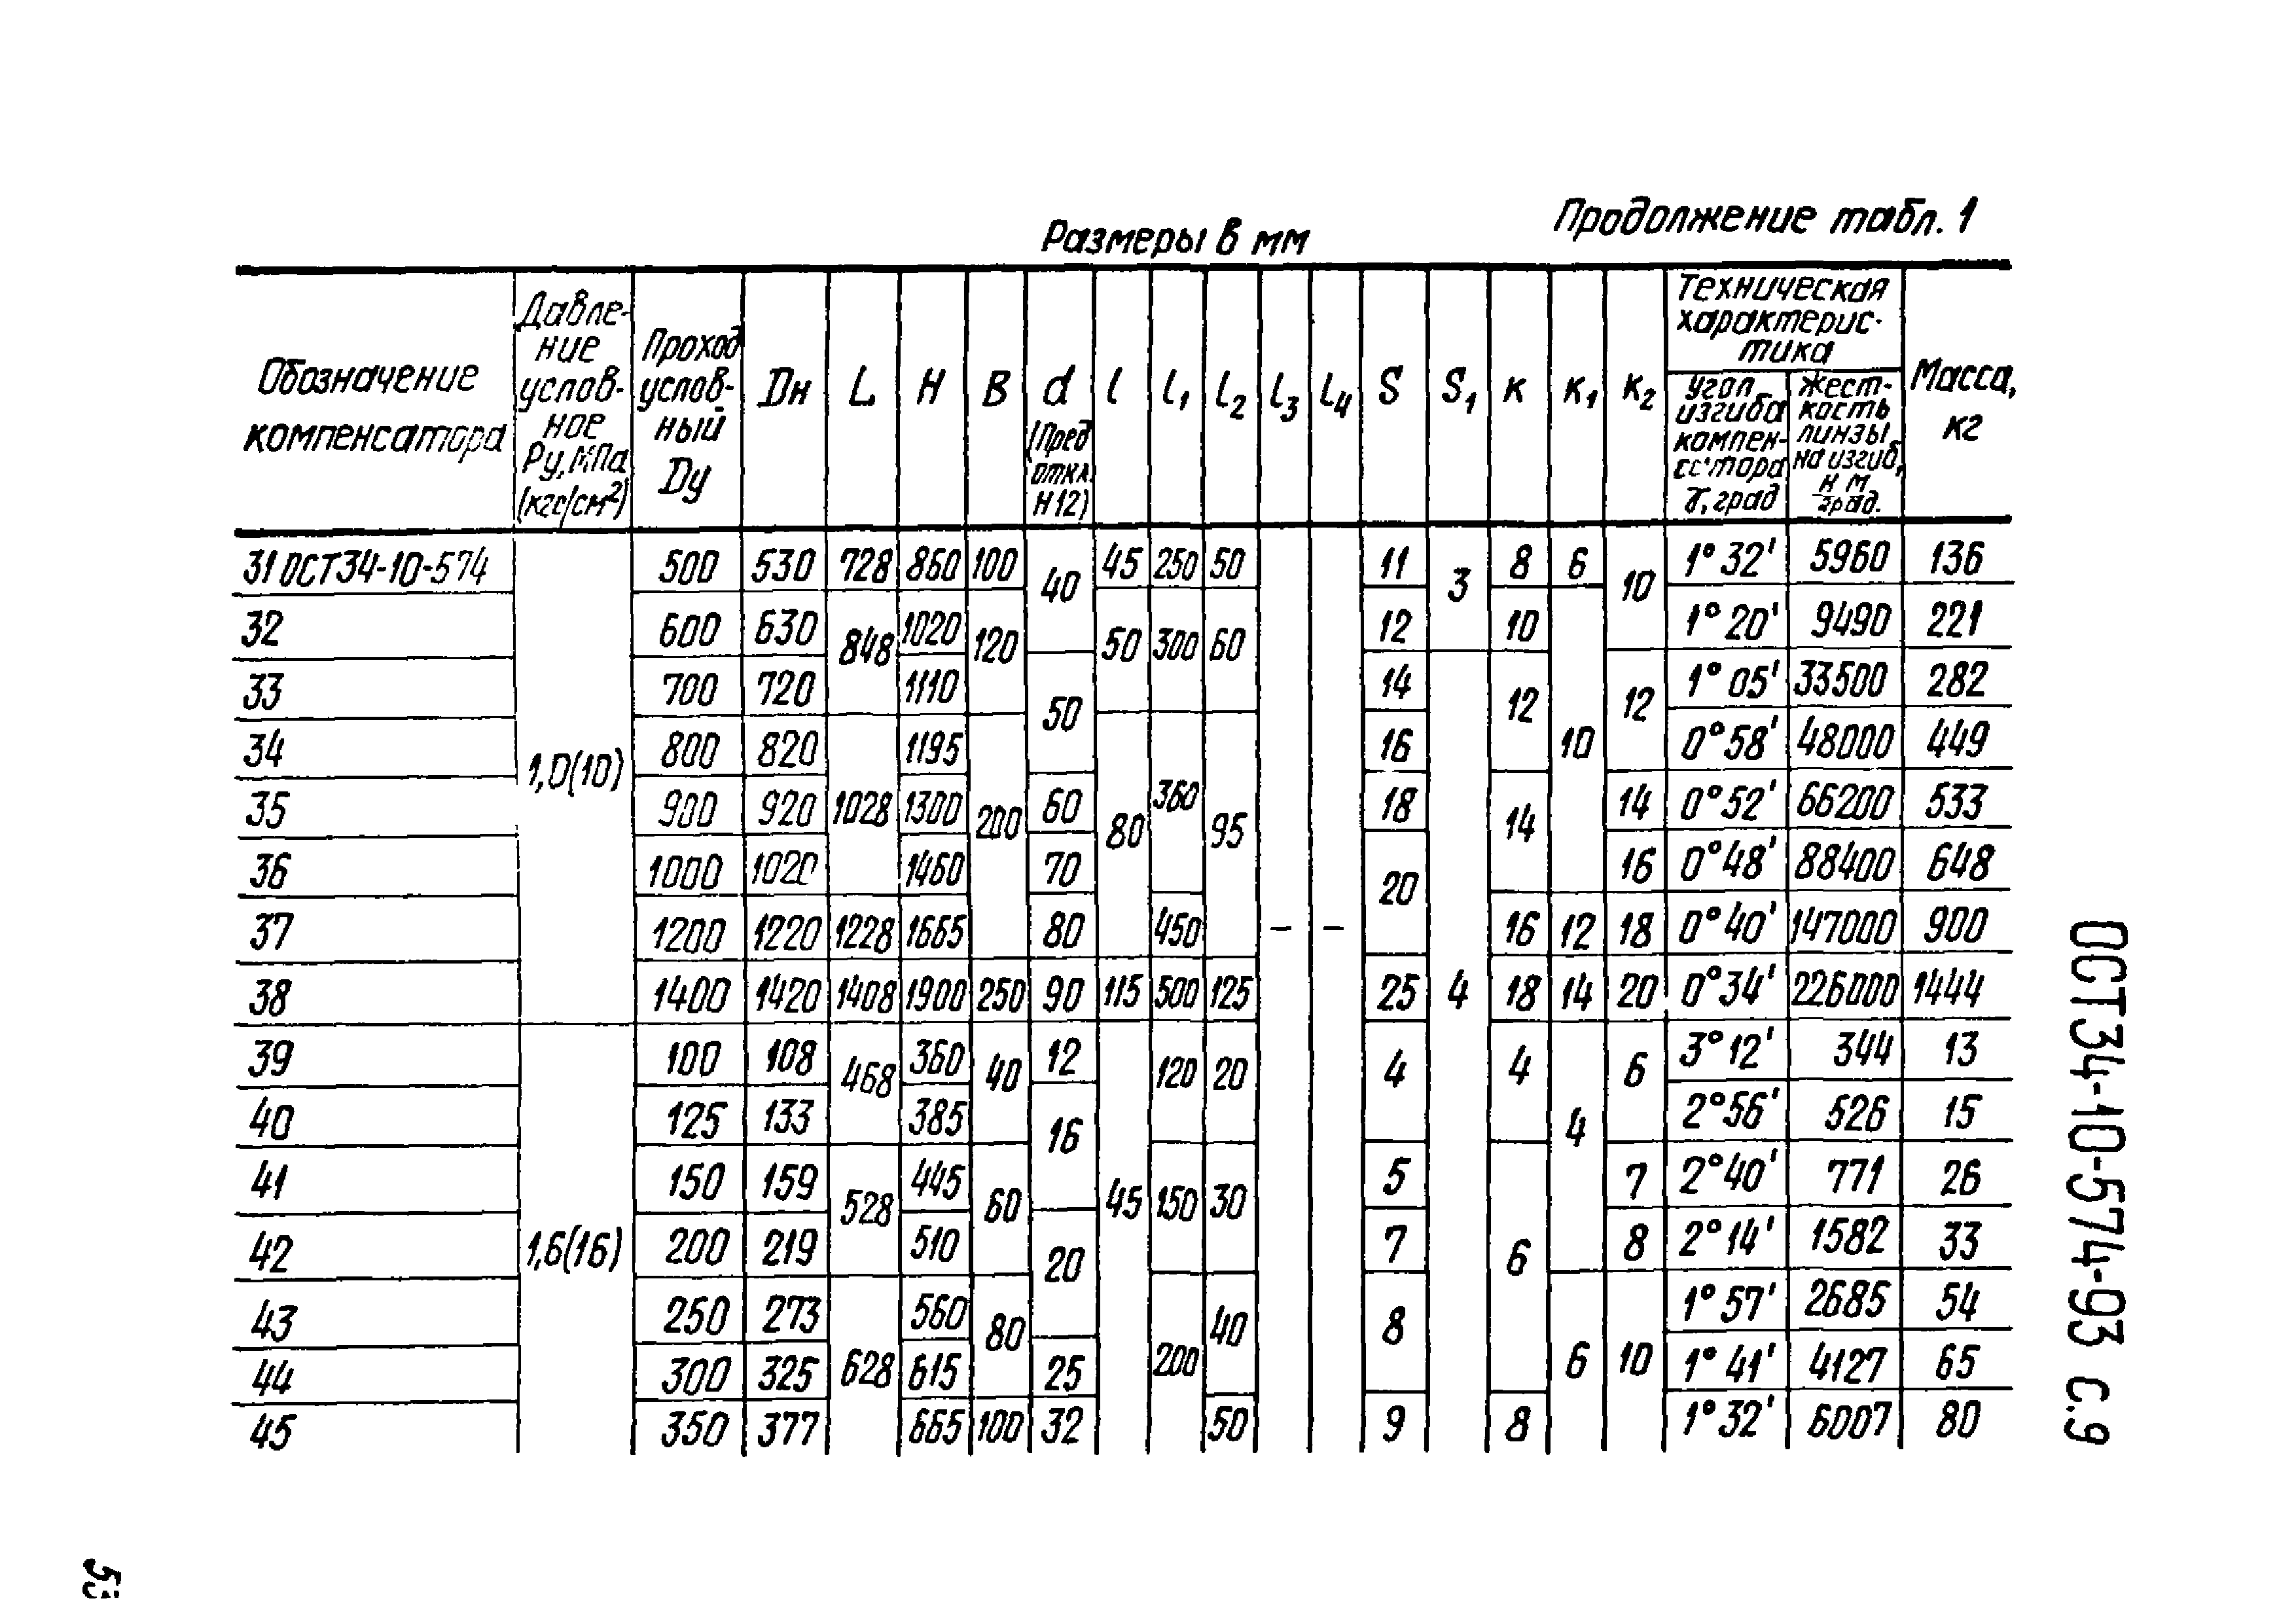 Продолжение табл. 1
Размеры в мм
Обозначение компенсатора | Давле- ние услов- ное Ру, МПа (кгс/см²) | Проход услов- ный Dу | Dн | L | H | B | d (Пред. откл. H12) | l | l₁ | l₂ | l₃ | l₄ | S | S₁ | к | к₁ | к₂ | Техническая характерис- тика | Масса, кг
Угол изгиба компен- сатора γ, град | Жест- кость линзы на изгиб, Н м/град.
31 ОСТ34-10-574 | 1,0(10) | 500 | 530 | 728 | 860 | 100 | 40 | 45 | 250 | 50 | - | - | 11 | 3 | 8 | 6 | 10 | 1°32' | 5960 | 136
32 | 600 | 630 | 848 | 1020 | 120 | 50 | 300 | 60 | 12 | 10 | 10 | 1°20' | 9490 | 221
33 | 700 | 720 | 1110 | 50 | 14 | 4 | 12 | 12 | 1°05' | 33500 | 282
34 | 800 | 820 | 1028 | 1195 | 200 | 80 | 360 | 95 | 16 | 0°58' | 48000 | 449
35 | 900 | 920 | 1300 | 60 | 18 | 14 | 14 | 0°52' | 66200 | 533
36 | 1000 | 1020 | 1460 | 70 | 20 | 16 | 0°48' | 88400 | 648
37 | 1200 | 1220 | 1228 | 1665 | 80 | 450 | 16 | 12 | 18 | 0°40' | 147000 | 900
38 | 1400 | 1420 | 1408 | 1900 | 250 | 90 | 115 | 500 | 125 | 25 | 18 | 14 | 20 | 0°34' | 226000 | 1444
39 | 1,6(16) | 100 | 108 | 468 | 360 | 40 | 12 | 45 | 120 | 20 | 4 | 4 | 4 | 6 | 3°12' | 344 | 13
40 | 125 | 133 | 385 | 16 | 2°56' | 526 | 15
41 | 150 | 159 | 528 | 445 | 60 | 150 | 30 | 5 | 6 | 7 | 2°40' | 771 | 26
42 | 200 | 219 | 510 | 20 | 7 | 8 | 2°14' | 1582 | 33
43 | 250 | 273 | 628 | 560 | 80 | 200 | 40 | 8 | 6 | 10 | 1°57' | 2685 | 54
44 | 300 | 325 | 615 | 25 | 1°41' | 4127 | 65
45 | 350 | 377 | 665 | 100 | 32 | 50 | 9 | 8 | 1°32' | 6007 | 80
ОСТ34-10-574-93 С.9